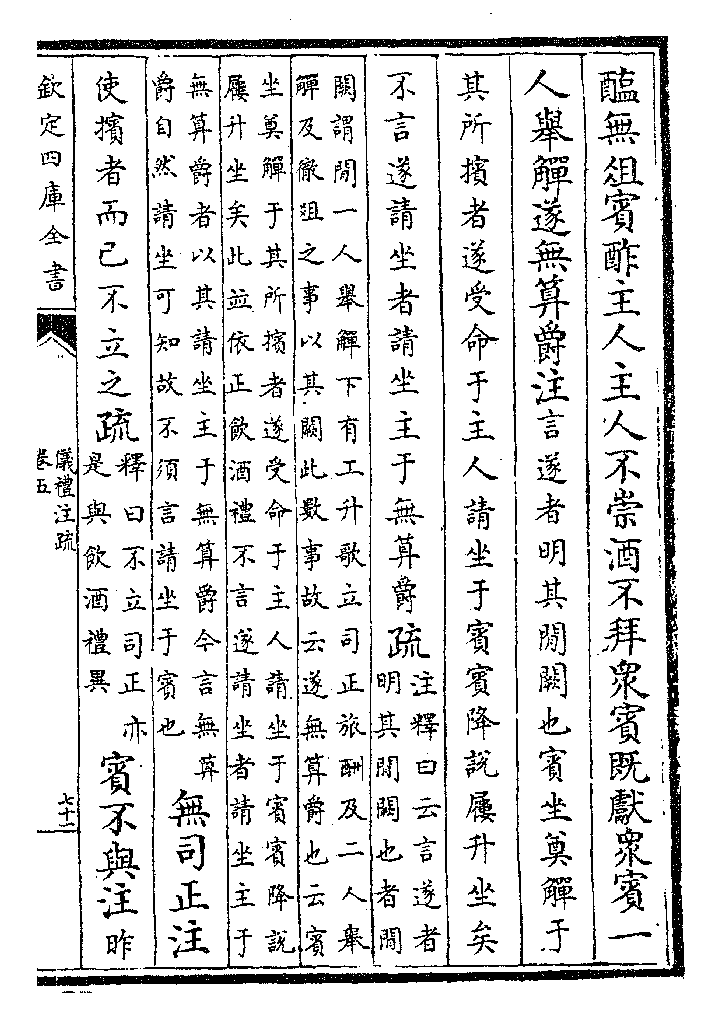 醢無俎賓酢主人主人不崇酒不拜衆賓既獻衆賓一
人舉觶遂無算爵注言遂者明其間闕也賓坐奠觶于
其所擯者遂受命于主人請坐于賓賓降說屨升坐矣
不言遂請坐者請坐主于無算爵疏
注釋曰云言遂者
明其間闕也者間
闕謂間一人舉觶下有工升歌立司正旅酬及二人舉
觶及徹俎之事以其闕此數事故云遂無算爵也云賓
坐奠觶于其所擯者遂受命于主人請坐于賓賓降說
屨升坐矣此並依正飲酒禮不言遂請坐者請坐主于
無算爵者以其請坐主于無算爵今言無算
爵自然請坐可知故不須言請坐于賓也
無司正注
使擯者而已不立之疏
釋曰不立司正亦
是與飲酒禮異
賓不與注昨
欽定四庫全書
儀禮注疏
卷五
七十一